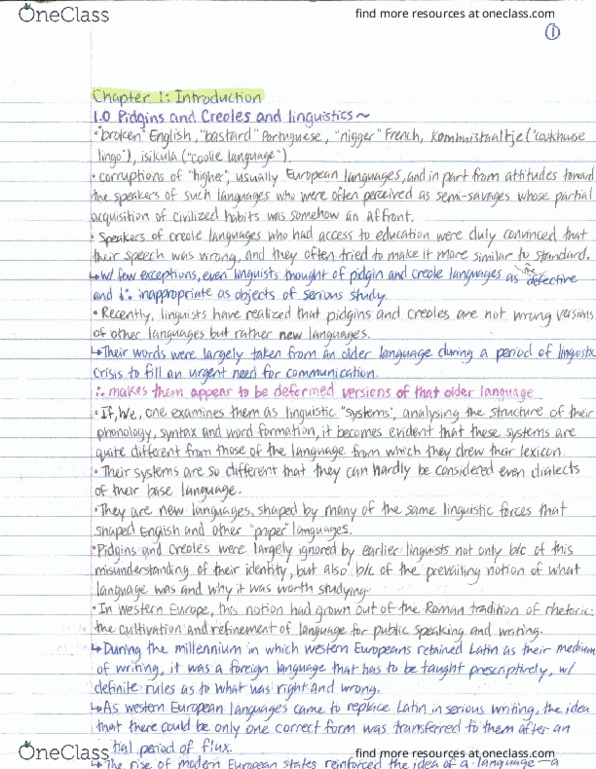 OneClass
find more resources at oneclass.com
1
Chapter 1: Introduction
1.0 Pidgins and Creoles and linguistics ~
• "broken" English, "bastard" Portuguese, "nigger" French, kombuistaaltje ("cookhouse
lingo"), isikula ("coolie language")
• corruptions of "higher", usually European languages, and in part from attitudes toward
the speakers of such languages who were often perceived as semi-savages whose partial
acquisition of civilized habits was somehow an affront.
• Speakers of creole languages who had access to education were duly convinced that
their speech was wrong, and they often tried to make it more similar to the standard.
↳ w/ few exceptions, even linguists thought of pidgin and creole languages as defective
and ∴ inappropriate as objects of serious study.
• Recently, linguists have realized that pidgins and creoles are not wrong versions
of other languages but rather new languages.
↳ Their words were largely taken from an older language during a period of linguistic
crisis to fill an urgent need for communication.
∴ makes them appear to be deformed versions of that older language
• If, one examines them as linguistic "systems", analysing the structure of their
phonology, syntax and word formation, it becomes evident that these systems are
quite different from those of the language from which they drew their lexicon.
• Their systems are so different that they can hardly be considered even dialects
of their base language.
• They are new languages, shaped by many of the same linguistic forces that
shaped English and other "proper" languages.
• Pidgins and Creoles were largely ignored by earlier linguists not only b/c of this
misunderstanding of their identity, but also b/c of the prevailing notion of what
language was and why it was worth studying.
• In western Europe, this notion had grown out of the Roman tradition of rhetoric:
the cultivation and refinement of language for public speaking and writing.
↳ During the millennium in which western Europeans retained Latin as their medium
of writing, it was a foreign language that has to be taught prescriptively, w/
definite rules as to what was right and wrong.
↳ As western European languages came to replace Latin in serious writing, the idea
that there could be only one correct form was transferred to them after an
tial period of flux.
↳ The rise of modern European states reinforced the idea of a language — a
OneClass
find more resources at oneclass.com